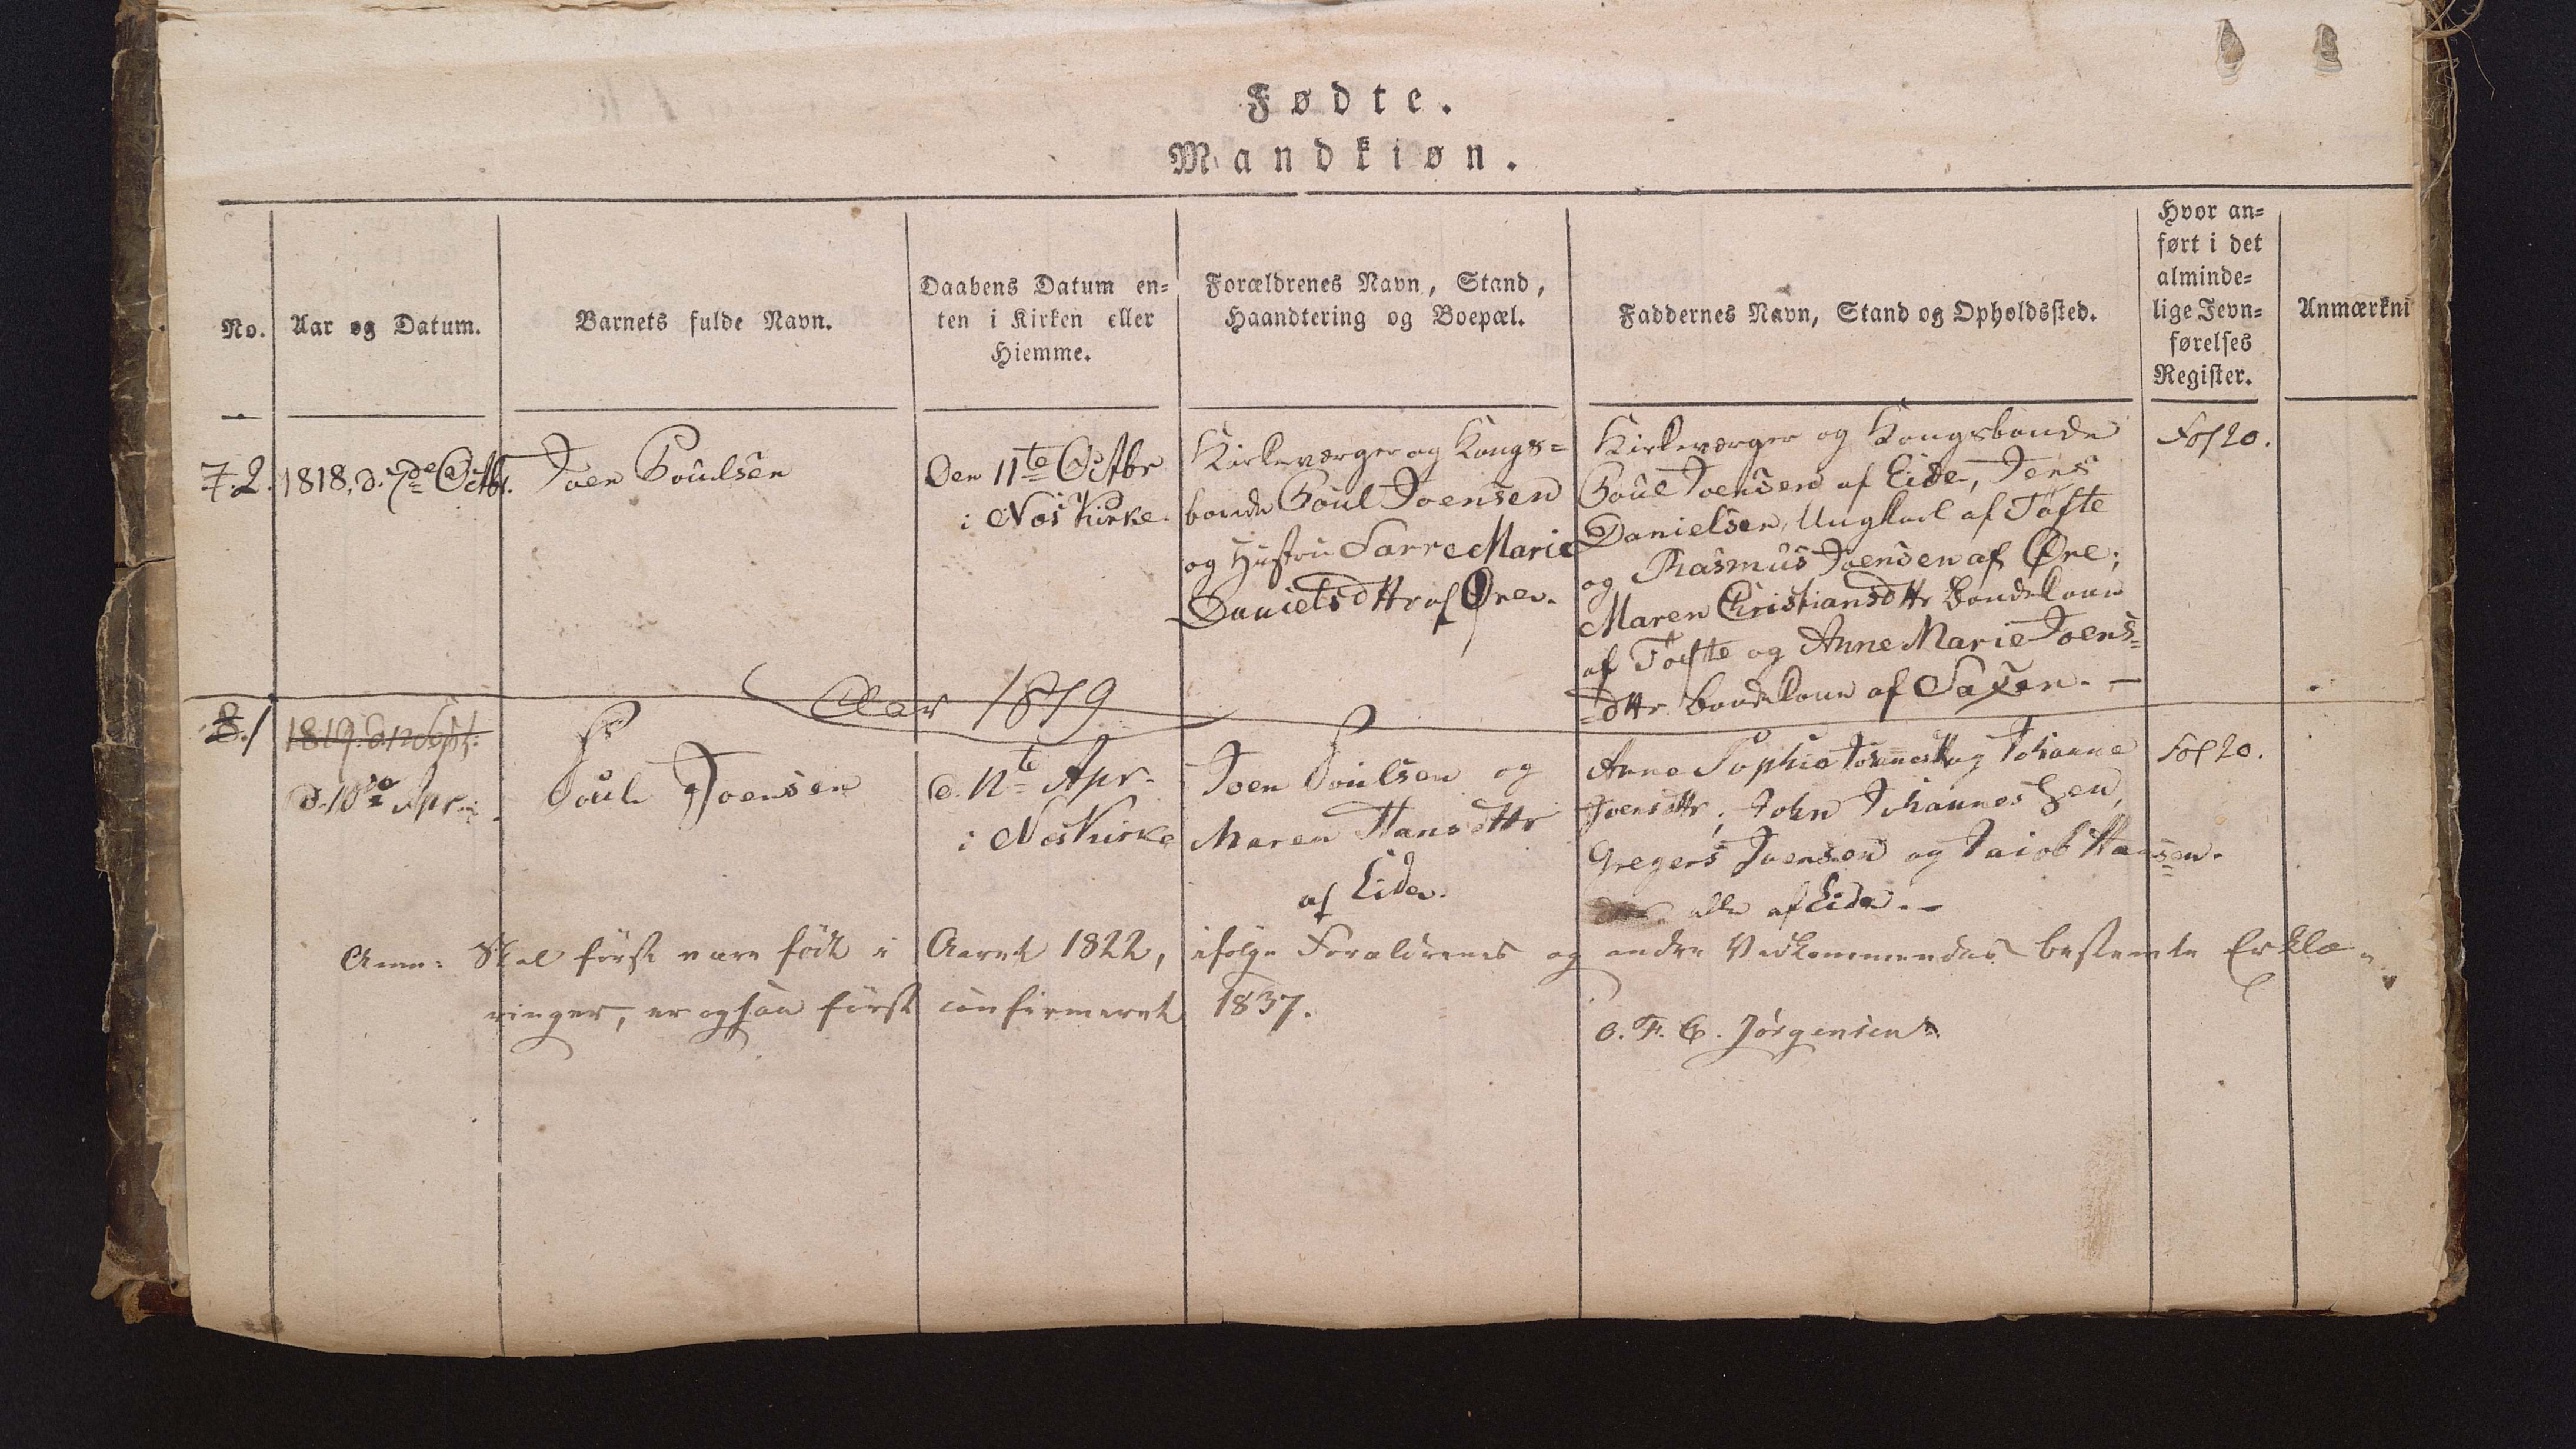 Fødte.
Mandkiøn.
No.
Aar og Datum.
Barnets fulde Navn.
Daabens Datum en-
ten i Kirken eller
Hiemme.
Forældrenes Navn, Stand,
Haandtering og Boepæl.
Faddernes Navn, Stand og Opholdssted.
Hvor an-
ført i det
alminde-
lige Jevn-
førelses
Register.
Anmærkni
7. 2.
1818, d. 7de Octbr.
Joen Poulsen
Den 11te Octbr
i Nes Kirke.
Kirkeværger og Kongs-
bonde Poul Joensen
og Hustru Sarre Marie
Danielsdttr af Øre.
Kirkeværger og Kongsbonde
Poul Joensen af Eide, Jens
Danielsen, Ungkarl af Tofte
og Rasmus Joensen af Øre;
Maren Christiansdttr Bondekone
af Tofte og Anne Marie Joens-
-dttr Bondekone af Saxen. -
Fol 20.
Aar 1819
8. 1
1819. d. 12 Sept.
d. 10de Apr.
Poul Joensen
d. 12te Apr.
i Nes Kirke
Joen Poulsen og
Maren Hansdttr
af Eide.
Anne Sophie og Johanne
Joensdttr, John Johannessen,
Gregers Joensen og Jacob Hansen.
alle af Eide. -
Fol 20.
Anm: Skal først være født i Aaret 1822, ifølge Forældrenes og andre Vedkommendes bestemte Erklæ-
ringer, er ogsaa først confirmeret 1837.
O. F. C. Jörgensen